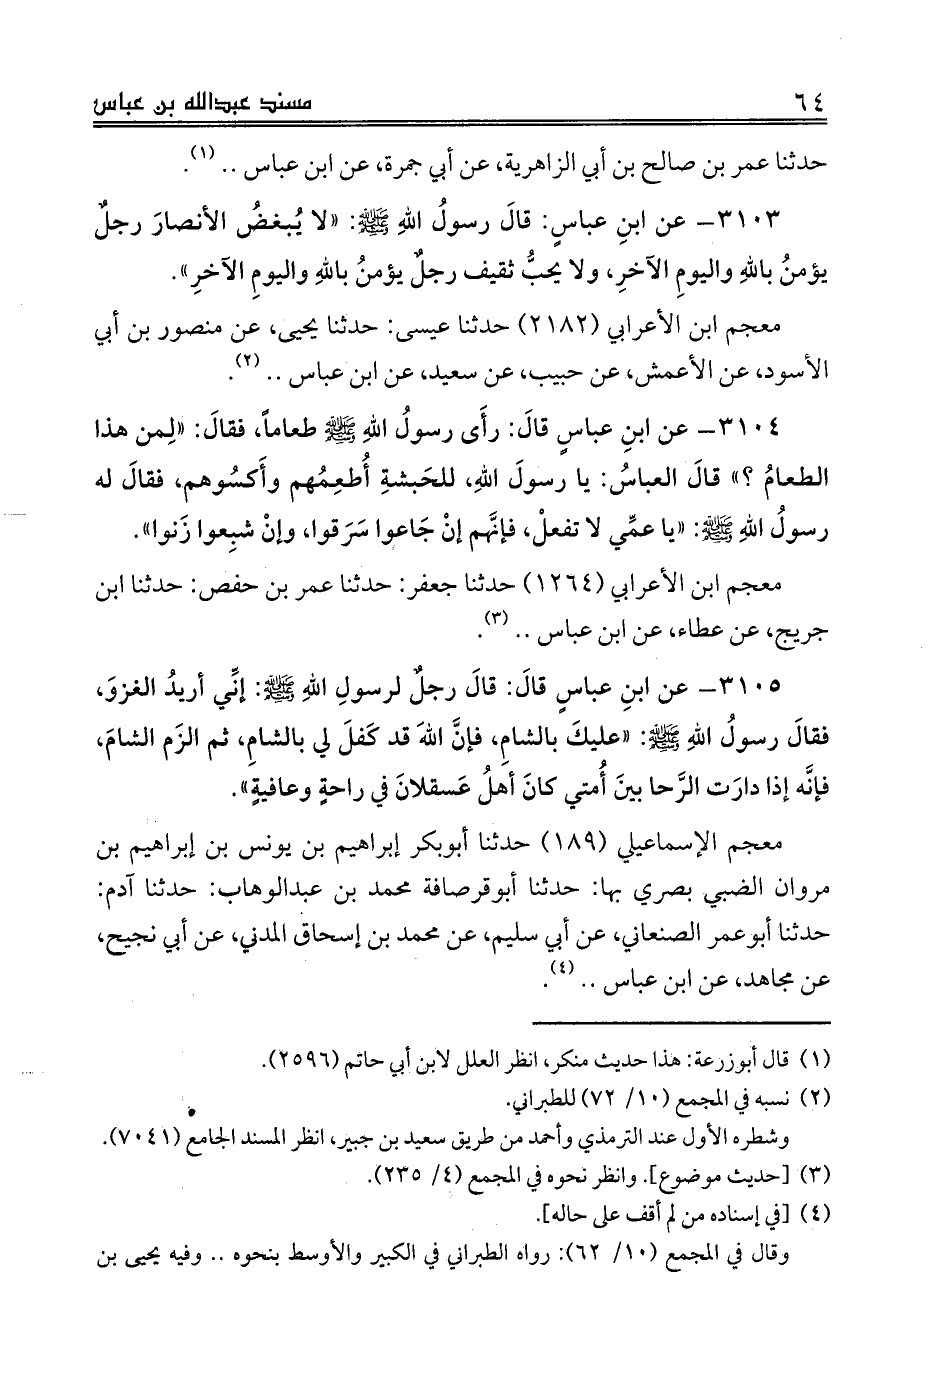 ٦٤ مسند عبدالله بن عباس
حدثنا عمر بن صالح بن أبي الزاهرية، عن أبي جمرة، عن ابن عباس .. (١).
٣١٠٣- عن ابنِ عباسٍ: قالَ رسولُ اللهِ ﷺ: «لا يُبغضُ الأنصارَ رجلٌ
يؤمنُ باللهِ واليومِ الآخرِ، ولا يحبُّ ثقيف رجلٌ يؤمنُ باللهِ واليومِ الآخرِ».
معجم ابن الأعرابي (٢١٨٢) حدثنا عيسى: حدثنا يحيى، عن منصور بن أبي
الأسود، عن الأعمش، عن حبيب، عن سعيد، عن ابن عباس .. (٢).
٣١٠٤- عن ابنِ عباسٍ قالَ: رأَى رسولُ اللهِ ﷺ طعاماً، فقالَ: «لِمن هذا
الطعامُ ؟» قالَ العباسُ: يا رسولَ اللهِ، للحَبشةِ أُطعِمُهم وأَكسُوهم، فقالَ له
رسولُ اللهِ ﷺ: «يا عمِّي لا تفعلْ، فإنَّهم إنْ جَاعوا سَرَقوا، وإنْ شبِعوا زَنوا».
معجم ابن الأعرابي (١٢٦٤) حدثنا جعفر: حدثنا عمر بن حفص: حدثنا ابن
جريج، عن عطاء، عن ابن عباس .. (٣).
٣١٠٥- عن ابنِ عباسٍ قالَ: قالَ رجلٌ لرسولِ اللهِ ﷺ: إنِّي أريدُ الغزوَ،
فقالَ رسولُ اللهِ ﷺ: «عليكَ بالشامِ، فإنَّ اللهَ قد كفَلَ لي بالشامِ، ثم الزَم الشامَ،
فإنَّه إذا دارَت الرَّحا بينَ أُمتي كانَ أهلُ عَسقلانَ في راحةٍ وعافيةٍ».
معجم الإسماعيلي (١٨٩) حدثنا أبوبكر إبراهيم بن يونس بن إبراهيم بن
مروان الضبي بصري بها: حدثنا أبوقرصافة محمد بن عبدالوهاب: حدثنا آدم:
حدثنا أبوعمر الصنعاني، عن أبي سليم، عن محمد بن إسحاق المدني، عن أبي نجيح،
عن مجاهد، عن ابن عباس .. (٤).
(١) قال أبوزرعة: هذا حديث منكر، انظر العلل لابن أبي حاتم (٢٥٩٦).
(٢) نسبه في المجمع (١٠/ ٧٢) للطبراني.
وشطره الأول عند الترمذي وأحمد من طريق سعيد بن جبير، انظر المسند الجامع (٧٠٤١).
(٣) [حديث موضوع]. وانظر نحوه في المجمع (٤/ ٢٣٥).
(٤) [في إسناده من لم أقف على حاله].
وقال في المجمع (١٠/ ٦٢): رواه الطبراني في الكبير والأوسط بنحوه .. وفيه يحيى بن